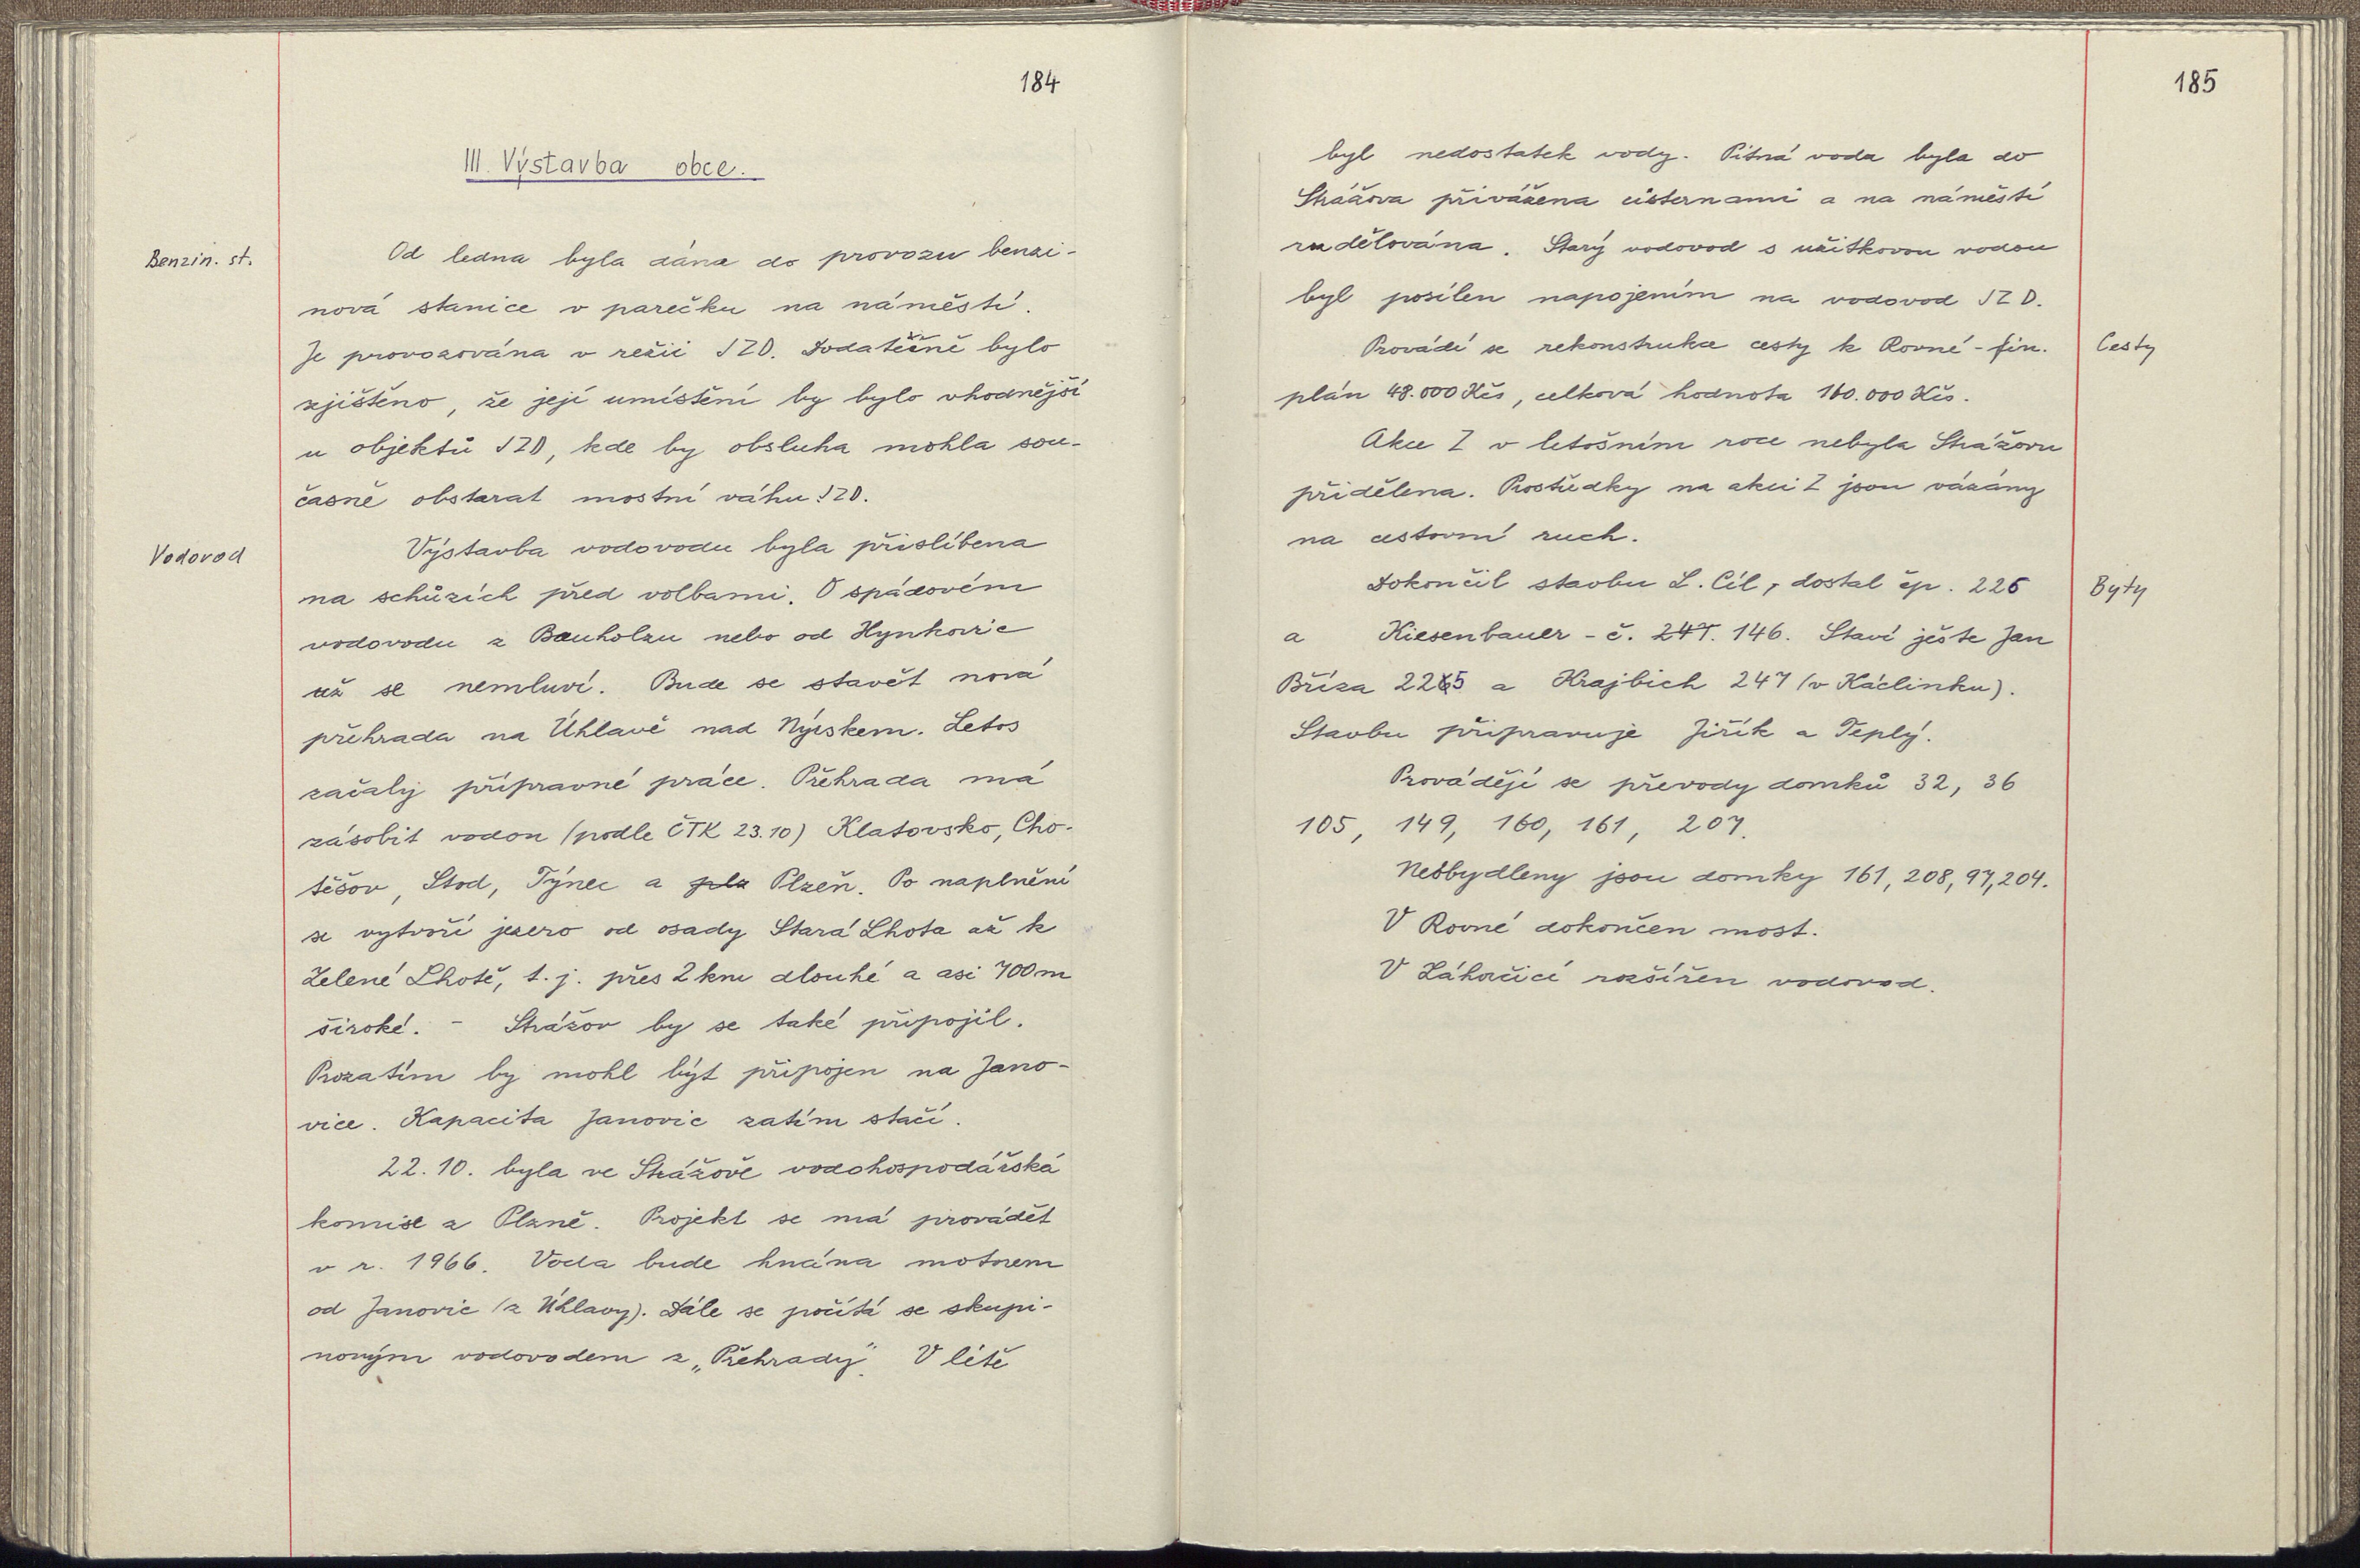 184
III. Výstavba obce.
Benzin. st.
Od ledna byla dána do provozu benzi-
nová stanice v parečku na náměstí.
Je provozována v režii JZD. Dodatečně bylo
zjištěno, že její umístění by bylo vhodnější
u objektů JZD, kde by obsluha mohla sou-
časně obstarat mostní váhu JZD.
Vodovod
Výstavba vodovodu byla přislíbena
na schůzích před volbami. O spádovém
vodovodu z Bauholzu nebo od Hynkovic
už se nemluví. Bude se stavět nová
přehrada na Úhlavě nad Nýrskem. Letos
začaly přípravné práce. Přehrada má
zásobit vodou (podle ČTK 23.10) Klatovsko, Cho-
těšov, Stod, Týnec a plz Plzeň. Po naplnění
se vytvoří jezero od osady Stará Lhota až k
Zelené Lhotě, t. j. přes 2 km dlouhé a asi 700 m
široké. - Strážov by se také připojil.
Prozatím by mohl být připojen na Jano-
vice. Kapacita Janovic zatím stačí.
22. 10. byla ve Strážově vodohospodářská
komise z Plzně. Projekt se má provádět
v r. 1966. Voda bude hnána motorem
od Janovic (z Úhlavy). Dále se počítá se skupi-
novým vodovodem z „Přehrady". V létě
185
byl nedostatek vody. Pitná voda byla do
Strážova přivážena cisternami a na náměstí
rozdělována. Starý vodovod s užitkovou vodou
byl posílen napojením na vodovod JZD.
Cesty
Provádí se rekonstrukce cesty k Rovné - fin.
plán 48.000 Kčs, celková hodnota 160.000 Kčs.
Akce Z v letošním roce nebyla Strážovu
přidělena. Prostředky na akci Z jsou vázány
na cestovní ruch.
Byty
Dokončil stavbu L. Cíl, dostal čp. 226
a Kiesenbauer - č. 247. 146. Staví ješte Jan
Bříza 225 a Krajbich 247 (v Káclinku).
Stavbu připravuje Jiřík a Teplý.
Provádějí se převody domků 32, 36
105, 149, 160, 161, 207.
Neobydleny jsou domky 161, 208, 97, 204.
V Rovné dokončen most.
V Záhorčicí rozšířen vodovod.